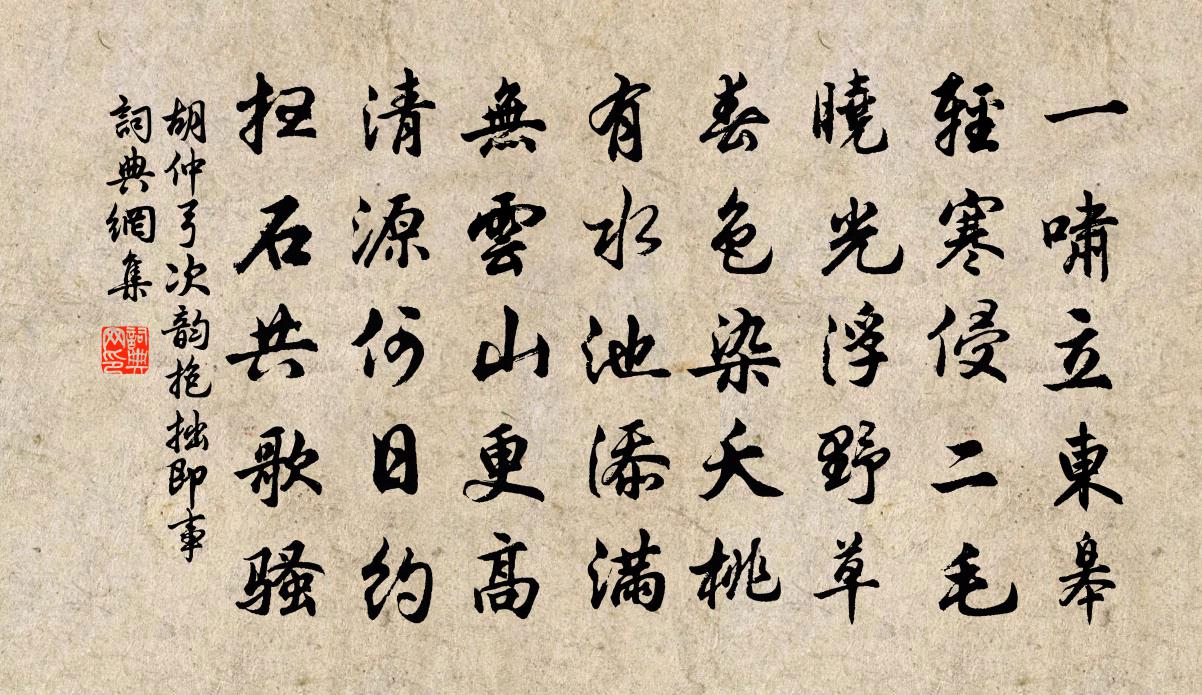 一嘯立東皋
輕寒侵二毛
曉光浮野草
春色染夭桃
有水池添滿
無雲山更高
清源何日約
扫石共歌騷
胡仲弓次韵抱拙即事
詞典網集
詞典
网印